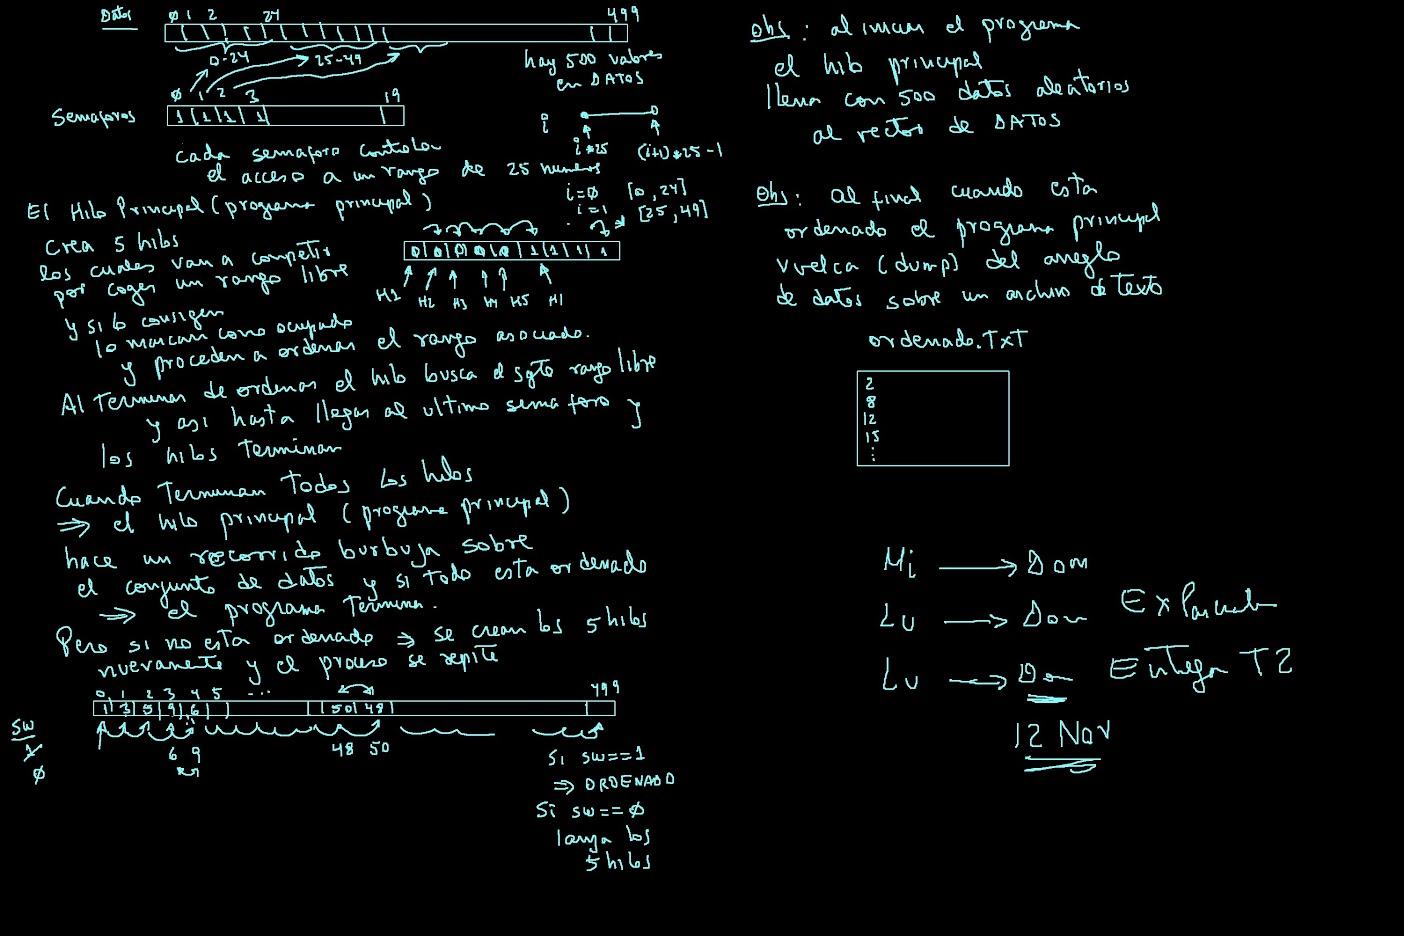 Datos
0 1 2 24 499
0-24 25-49
hay 500 valores
en DATOS
0 1 2 3 19
Semaforos 1 1 1 1
cada semaforo controla
el acceso a un rango de 25 numeros
i
i*25 (i+1)*25-1
i=0 [0,24]
i=1 [25,49]
El Hilo Principal (programa principal)
crea 5 hilos
los cuales van a competir
por coger un rango libre
y si lo consiguen
lo marcan como ocupado
y proceden a ordenar el rango asociado.
0 0 0 0 0 1 1 1 1
H1 H2 H3 H4 H5 H1
Al Terminar de ordenar el hilo busca el sgte rango libre
y asi hasta llegar al ultimo semaforo y
los hilos terminan
Cuando Terminan Todos los hilos
⇒ el hilo principal (programa principal)
hace un recorrido burbuja sobre
el conjunto de datos y si todo esta ordenado
⇒ el programa Termina.
Pero si no esta ordenado ⇒ se crean los 5 hilos
nuevamente y el proceso se repite
0 1 2 3 4 5 ... 499
1 3 5 9 6 50 48
SW
1
0
6 9 48 50
Si sw==1
⇒ ORDENADO
Si sw==0
lanza los
5 hilos
Obs: al iniciar el programa
el hilo principal
llena con 500 datos aleatorios
al vector de DATOS
Obs: al final cuando esta
ordenado el programa principal
vuelca (dump) del arreglo
de datos sobre un archivo de Texto
ordenado.TXT
2
8
12
15
⋮
Mi → Dom
Lu → Dom Ex Parcial
Lu → Dom Entrega T2
12 Nov